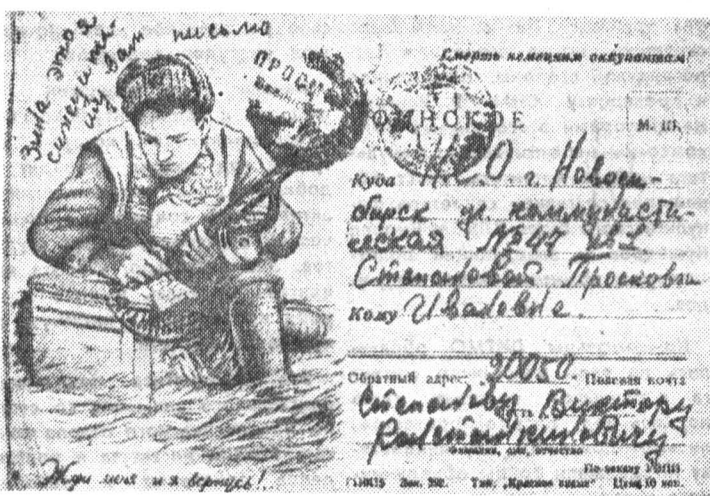 Зина это я
сижу и пи-
шу вам письмо
Смерть немецким оккупантам!
ПРОСМ
ВОИНСКОЕ
М. Ш.
Куда Н.С.О г. Новоси-
бирск ул. коммунисти-
ческая №47 кв 1
Степановой Просковьи
Кому Ивановне
Обратный адрес: 20050 Полевая почта
Степанову Виктору
Константиновичу
Фамилия, имя, отчество
Жди меня и я вернусь!..
По заказу
Зак. 292. Тип. „Красное знамя" Цена 10 коп.